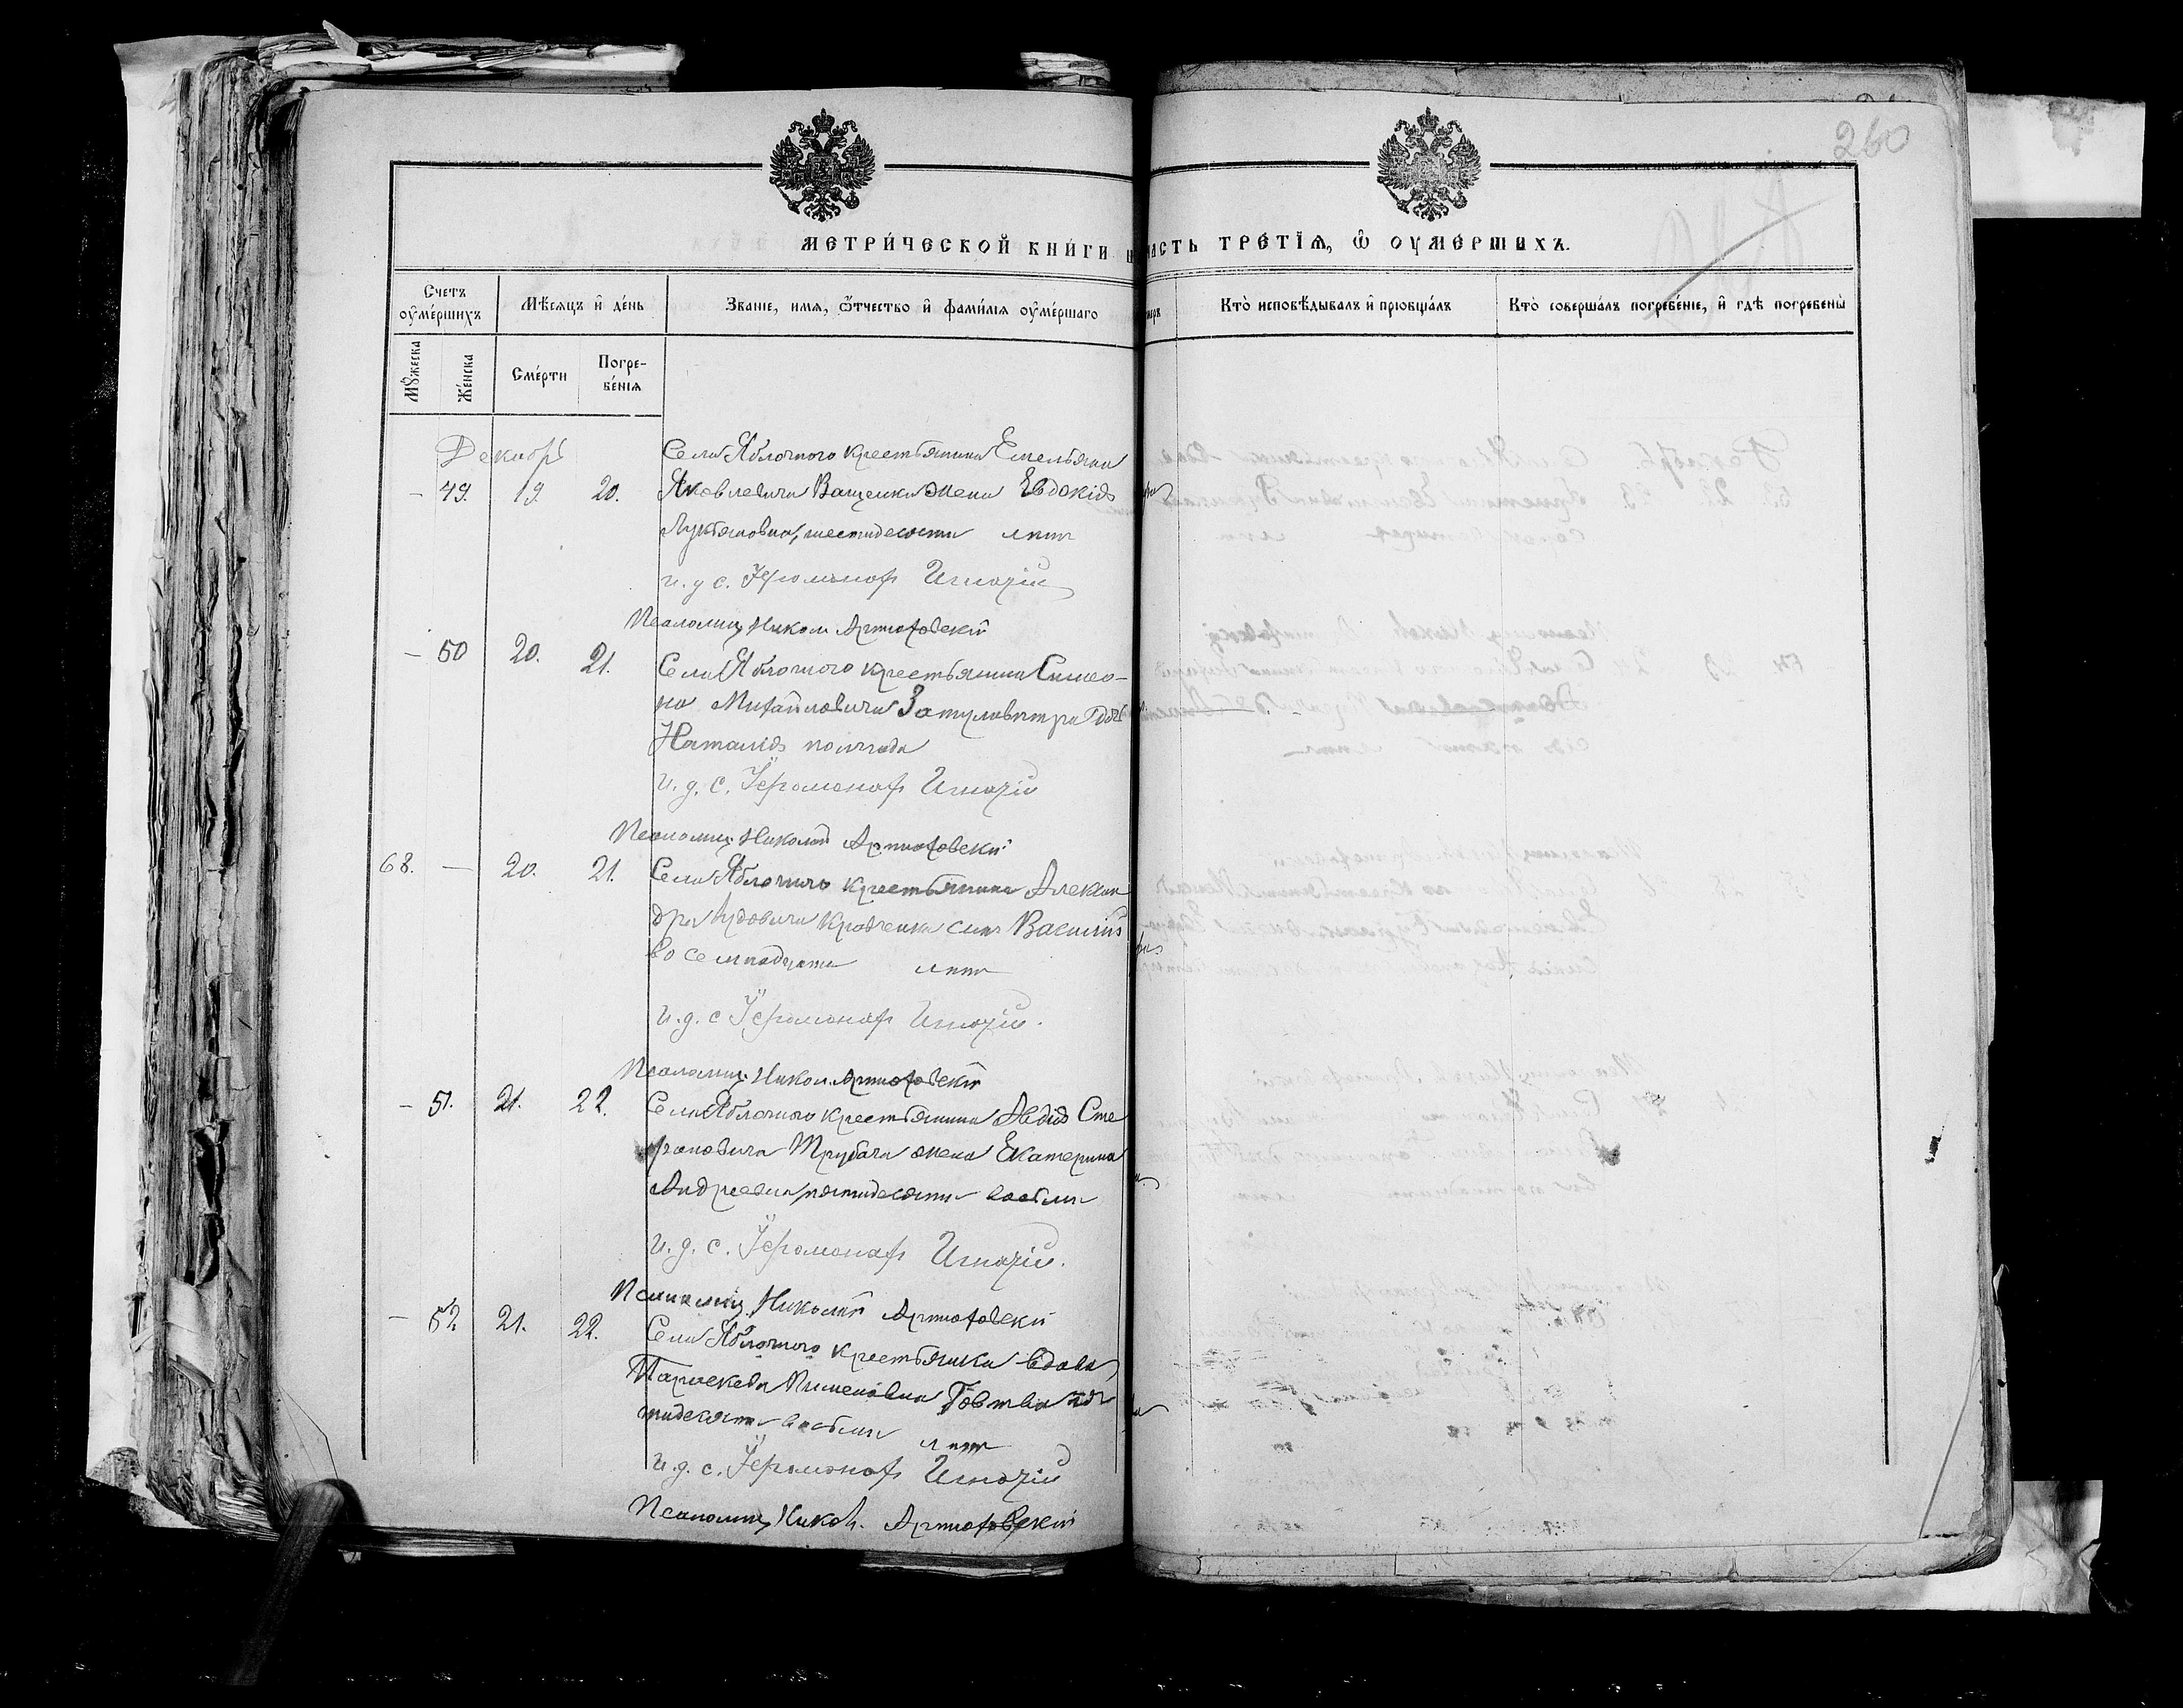 260
МЕТРИ́ЧЕСКОЙ КНИ́ГИ Ч
АСТЬ ТРЕ́ТЇѦ, Ѽ ОУ҆МЕ́РШИХЪ.
Счетъ оу҆ме́ршихъ
Мѣсяцъ и҆ де́нь
Званіе, имѧ, ѻ҆́тчество и҆ фами́лїѧ оу҆ме́ршагѡ
Кто̀ исповѣ́дывалъ и҆ прїѡбща́лъ
Кто̀ соверша́лъ погребе́нїе, и҆ гдѣ̀ погребены̀
Мꙋ́жеска
Же́нска
Сме́рти
Погре-
бе́нїѧ
Декабрь
Села Яблочного крестьянина Емельяна
– 49. 19. 20. Яковлевича Ващенка жена Евдокія
Лукьяновна, шестидесяти лѣтъ
и. д с. Іеромонахъ Игнатій
Псаломщ. Никол Артюховскій
– 50 20. 21. Села Яблочного крестьянина Симео-
на Михайловича Затуливѣтра дочь
Наталія полгода
и. д. с. Іеромонахъ Игнатій
Псаломщ. Николай Артюховскій
68. — 20. 21. Села Яблочного крестьянина Алексан
дра Кравченка сынъ Василій
восемнадцати лѣтъ
и. д. с Іеромонахъ Игнатій.
Псаломщ. Никол. Артюховскій
– 51. 21. 22. Села Яблочного крестьянина Авдія Сте
фановича Трубача жена Екатерина
Андреевна, пятидесяти восьми
и. д. с. Іеромонахъ Игнатій.
Псаломщ. Николай Артюховскій
– 52 21. 22. Села Яблочного крестьянка вдова
Параскева Пименовна Говтва пя
тидесяти восьми лѣтъ
и. д. с. Іеромонахъ Игнатій
Псаломщ. Никол. Артюховскій